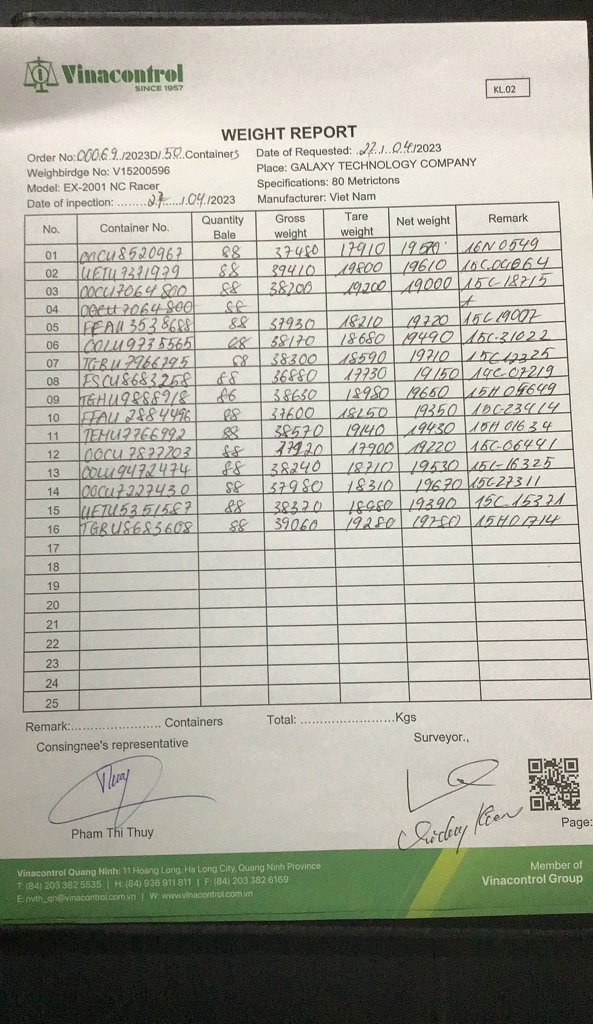 Vinacontrol
SINCE 1957
KL.02
WEIGHT REPORT
Order No: 00069/2023D/.50.Containers
Date of Requested: .27./.04/2023
Weighbirdge No: V15200596
Place: GALAXY TECHNOLOGY COMPANY
Model: EX-2001 NC Racer
Specifications: 80 Metrictons
Date of inpection: ........27..../.04./2023
Manufacturer: Viet Nam
No. Container No. Quantity Bale Gross weight Tare weight Net weight Remark
01 OOCU8520967 88 37480 17910 19570
02 UETU7371979 88 39410 19800 19610
03 OOCU7064800 88 38200 19200 19000 15C-18715
04 OOCU7064800 88
05 FFAU3538688 88 37930 18210 19720 15C19007
06 COLU9735565 88 38170 18680 19490 15C-31022
07 88 38300 18590 19710
08 FSCU8683258 88 36880 17730 19150 14C-07219
09 TGHU9888918 86 38630 18980 19650
10 FFAU2884496 88 37600 18250 19350 15C-23414
11 TEMU7766992 88 38570 19140 19430 15H01634
12 OOCU7877203 88 17900 19220 15C-06441
13 OOLU9472474 88 38240 18710 19530 15C-16325
14 OOCU7227430 88 37980 18310 19670 15C27311
15 UETU5351587 88 38370 18980 19390 15C-15371
16 TGBU8683608 88 39060 19280 19780 15H01714
17
18
19
20
21
22
23
24
25
Remark:...................... Containers Total: ........................Kgs
Consingnee's representative
Surveyor.,
Thuy
Pham Thi Thuy
Page:
Vinacontrol Quang Ninh: 11 Hoang Long, Ha Long City, Quang Ninh Province
T: (84) 203 382 5535 | H: (84) 936 911 811 | F: (84) 203 382 6169
E: nvth_qn@vinacontrol.com.vn | W: www.vinacontrol.com.vn
Member of
Vinacontrol Group